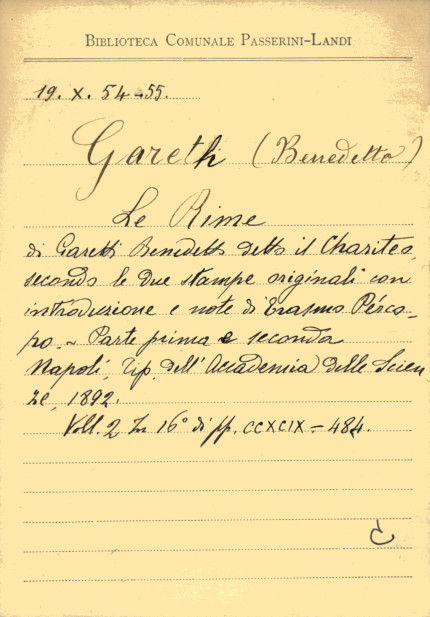 BIBLIOTECA COMUNALE PASSERINI-LANDI
19. X. 54-55.
Gareth (Benedetto)
Le Rime
di Gareth Benedetto detto il Chariteo,
secondo le due stampe originali con
introduzione e note di Erasmo Pérco-
po. ~ Parte prima e seconda
Napoli, Tip. dell'Accademia delle Scien-
ze, 1892.
Voll. 2 In 16° di pp. CCXCIX - 484.
C